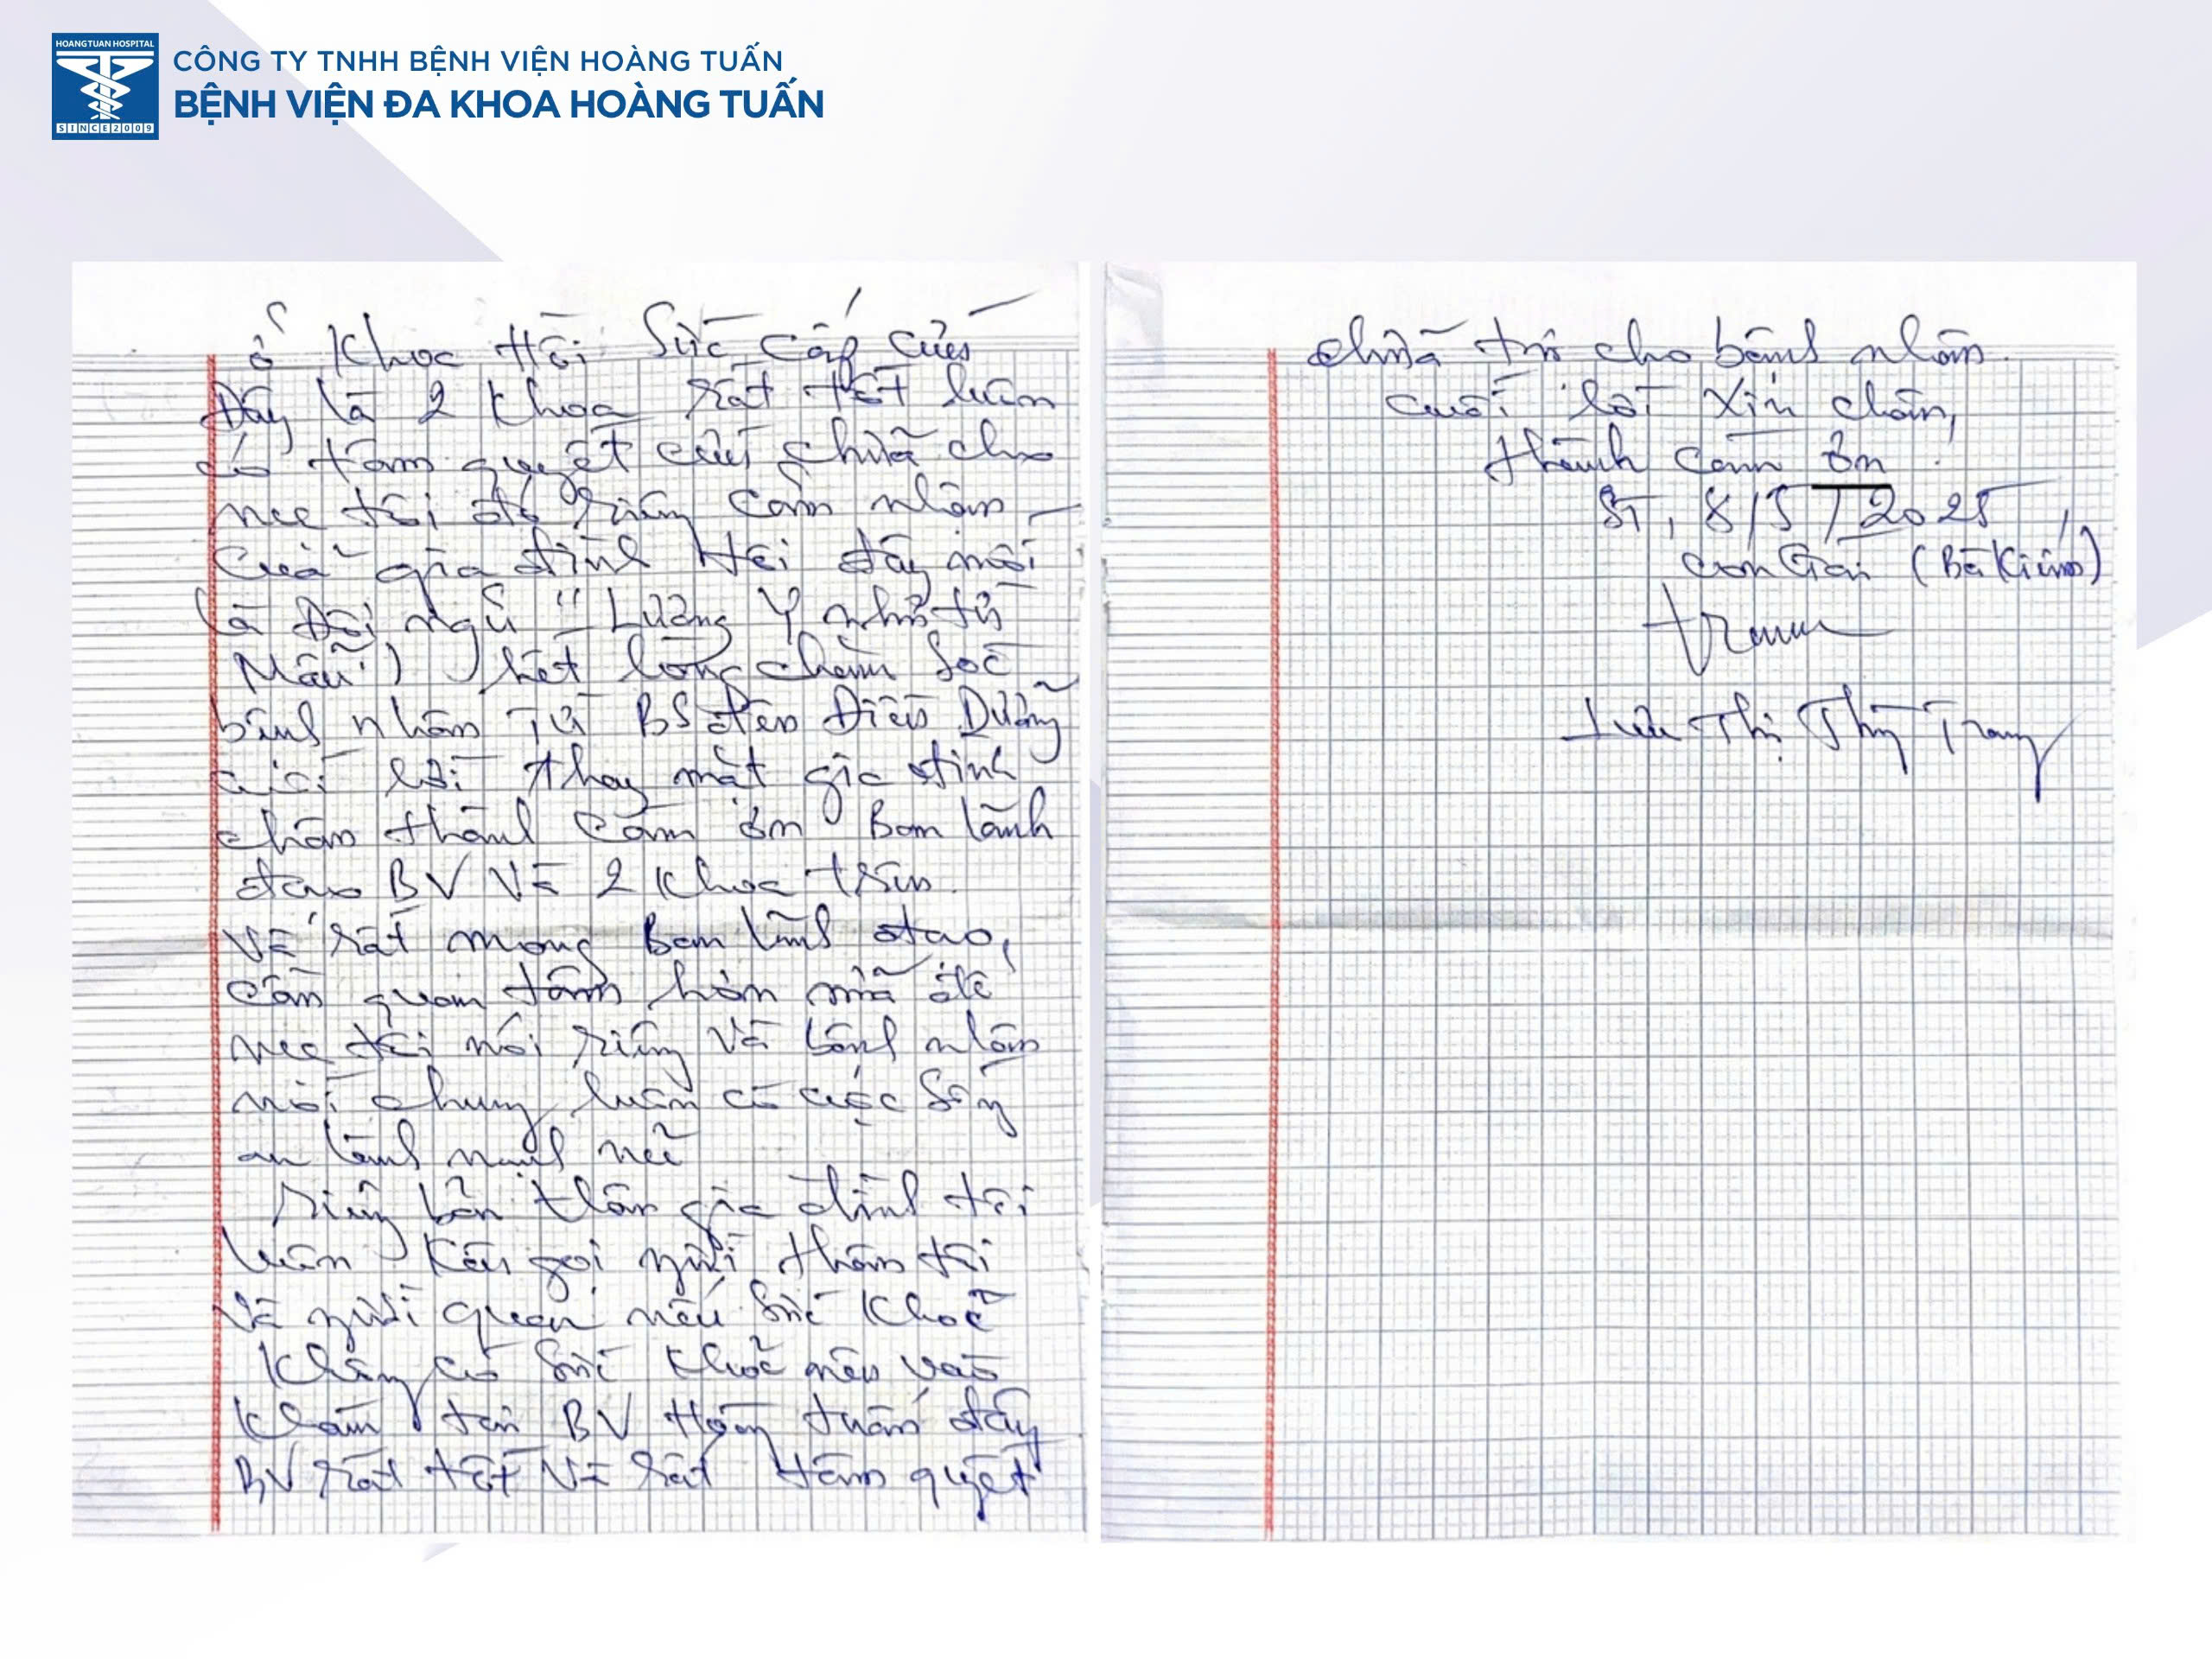 HOANGTUAN HOSPITAL
SINCE2009
CÔNG TY TNHH BỆNH VIỆN HOÀNG TUẤN
BỆNH VIỆN ĐA KHOA HOÀNG TUẤN
ở Khoa Hồi Sức cấp cứu
Đây là 2 khoa rất tốt luôn
có tâm quyết cứu chữa cho
mẹ tôi để riêng cảm nhận
Của gia đình tôi đây mới
là Đội ngũ "Lương Y như từ
Mẫu") hết lòng chăm sóc
bệnh nhân Từ BS đến Điều Dưỡng
lời thay mặt gia đình
chân thành cảm ơn Ban lãnh
đạo BV và 2 khoa trên.
Và rất mong Ban lãnh đạo,
cần quan tâm hơn nữa để
mẹ tôi nói riêng và bệnh nhân
nói chung luôn có cuộc sống
an lành mạnh mẽ
Riêng bản thân gia đình tôi
luôn kêu gọi người thân tôi
và người quen nếu sức khoẻ
Không có sức khoẻ nên vào
khám tại BV Hoàng tuấn đây
BV rất tốt và rất tâm quyết
chữa trị cho bệnh nhân.
cuối lời xin chân,
thành cảm ơn !
ST, 8/5/2025
con Gái (Bà Kiếm)
Lưu Thị Thùy Trang